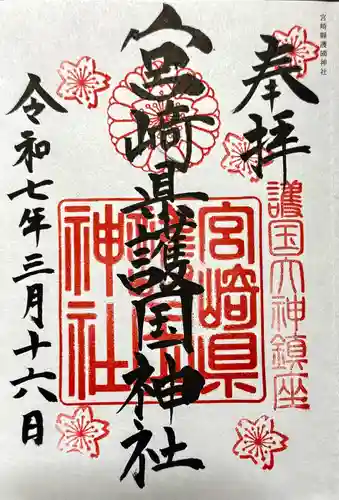 宮崎縣護國神社
奉拝
護国大神鎮座
宮崎県護国神社
宮崎県護国神社
令和七年三月十六日